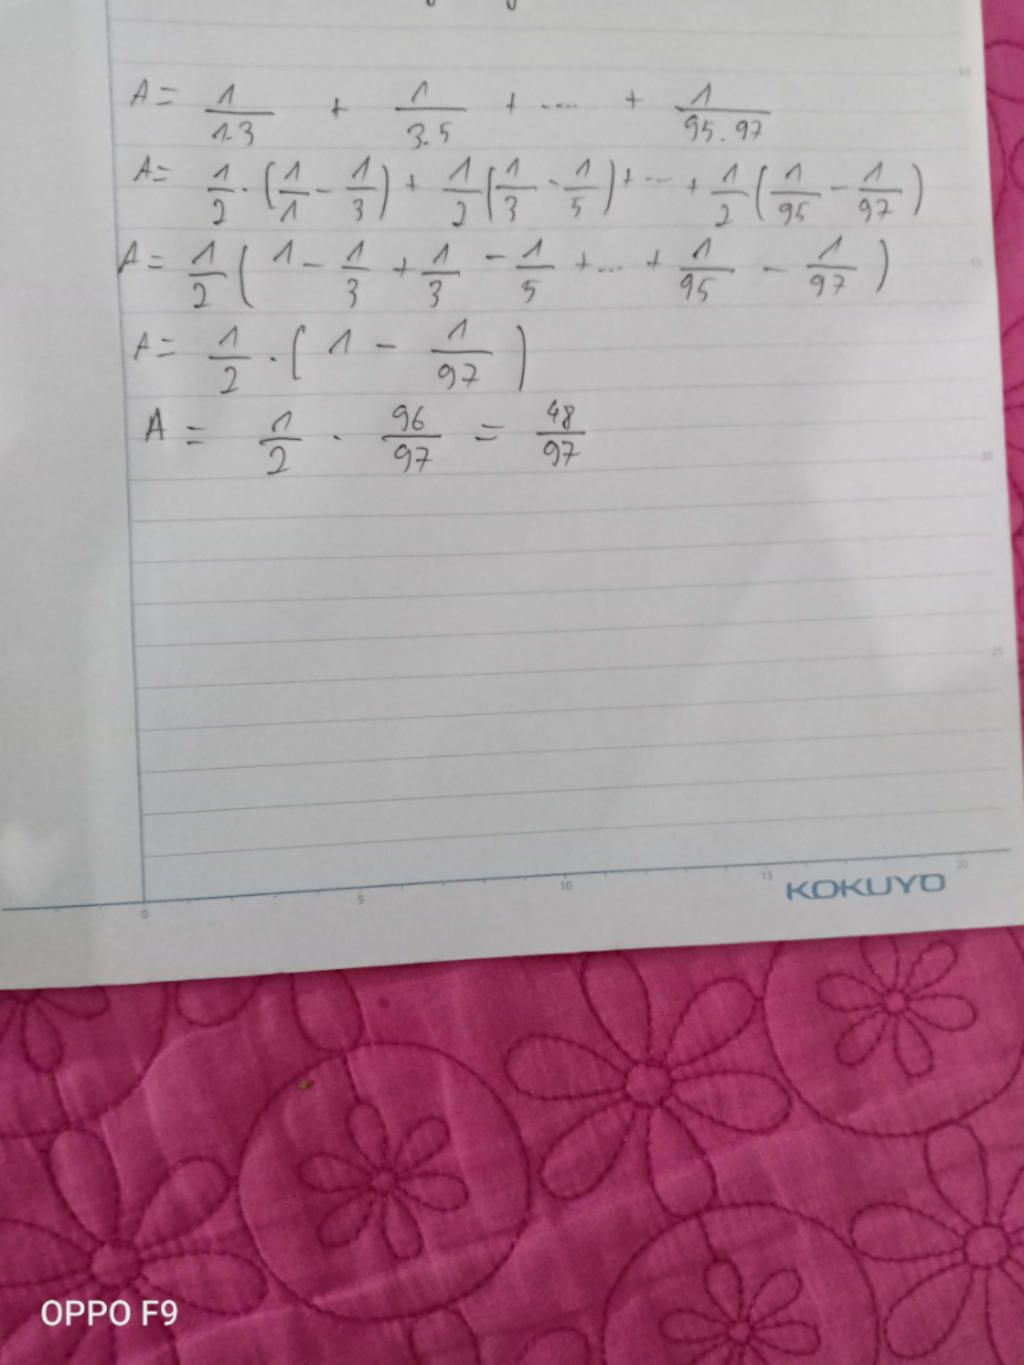 A = 1/1.3 + 1/3.5 + .... + 1/95.97
A = 1/2 . (1/1 - 1/3) + 1/2 (1/3 - 1/5) + ... + 1/2 (1/95 - 1/97)
A = 1/2 ( 1 - 1/3 + 1/3 - 1/5 + ... + 1/95 - 1/97 )
A = 1/2 . ( 1 - 1/97 )
A = 1/2 . 96/97 = 48/97
10
15
20
25
0 5 10 15 20
KOKUYO
OPPO F9